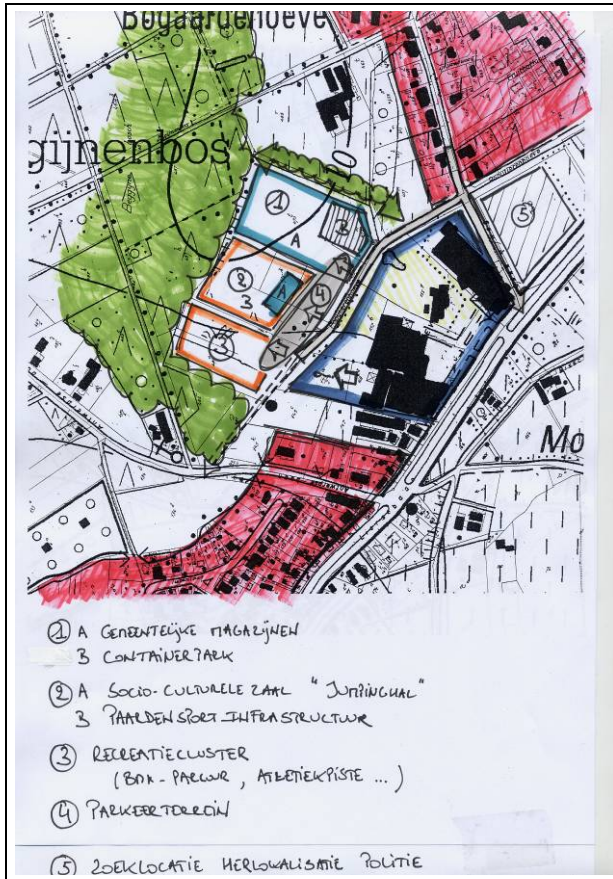 Bogaardenhoeve
gijnenbos
10
1
A
B
2
A
B
3
4
5
Mo
① A GEMEENTELIJKE MAGAZIJNEN
B CONTAINERPARK
② A SOCIO-CULTURELE ZAAL "JUMPINGHAL"
B PAARDENSPORT-INFRASTRUCTUUR
③ RECREATIECLUSTER
(BMX-PARCOUR, ATLETIEKPISTE ...)
④ PARKEERTERREIN
⑤ ZOEKLOCATIE HERLOKALISATIE POLITIE